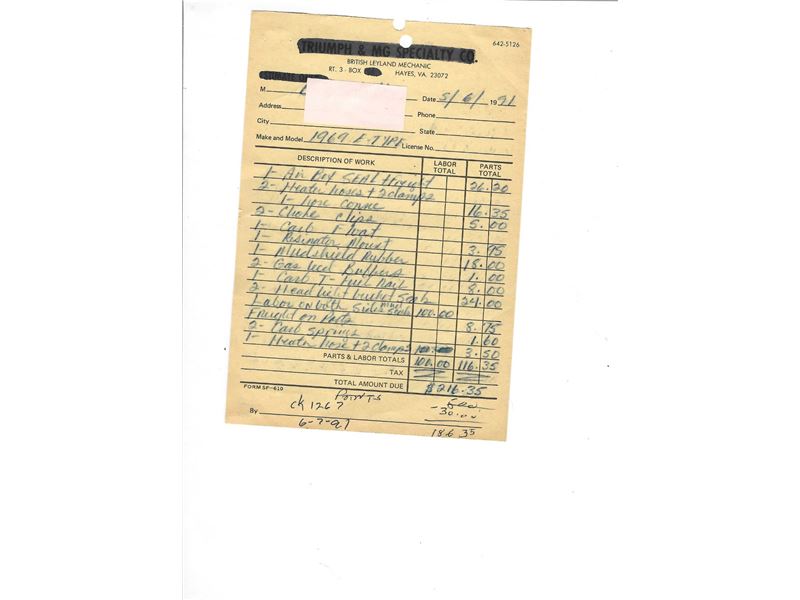 642-5126
TRIUMPH & MG SPECIALTY CO.
BRITISH LEYLAND MECHANIC
RT. 3 - BOX HAYES, VA. 23072
M
Date 5/6/ 1991
Address
Phone
City
State
Make and Model 1969 E-TYPE License No.
DESCRIPTION OF WORK LABOR TOTAL PARTS TOTAL
1- Air Box SEAL + Freight 26.20
2- Heater hoses + 2 clamps
1- hose connc 16.35
2- Choke Clips 5.00
1- Carb Float
1- Resinator Mount 3.75
1- Mudshield Rubber 18.00
2- Gas Lid Buffers 1.00
1- Carb T- Fuel Rail 8.00
2- Headlight bucket Seals 24.00
Labor on both Sides Seals 100.00
Freight on Parts 8.75
2- Carb Springs 1.60
1- Heater hose + 2 clamps 3.50
PARTS & LABOR TOTALS 100.00 116.35
TAX
TOTAL AMOUNT DUE $216.35
FORM SF-610
POINTS
ck 1267 - 30.00
By 6-7-91
186 35